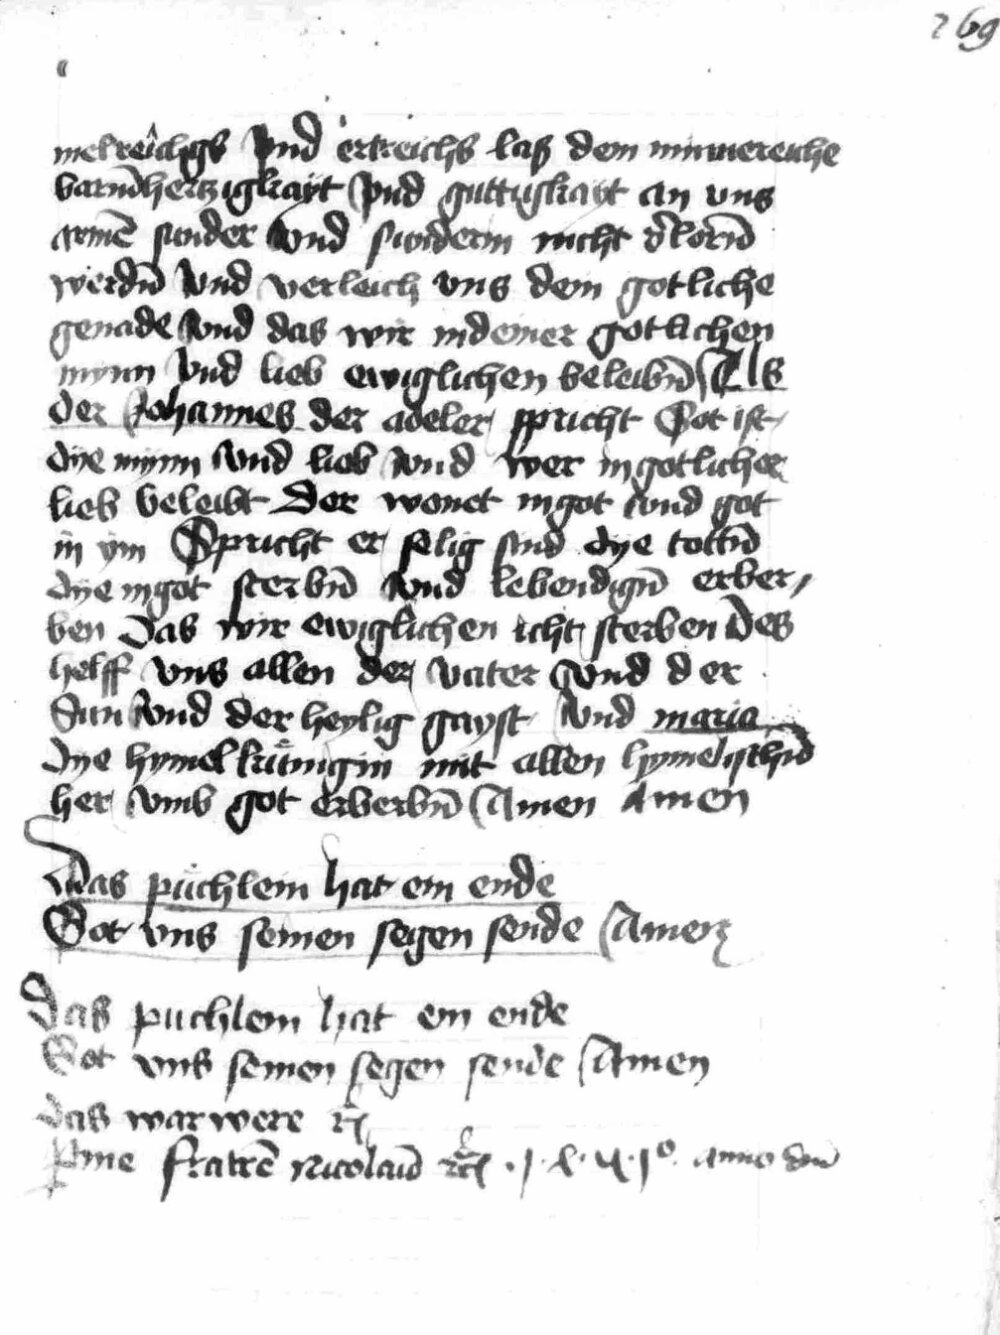 269
melreichgs vnd ertreichs laß dem minnereiche
barmhertzigkayt vnd guttigkayt an vns
armē sunder vnd sunderin nicht v̓lorn̄
werdn̄ vnd verleich vns dein gotliche
genade vnd das wir indeiner gotlichen
mynn vnd lieb ewiglichen beleibn̄ Als
der Johannes der adeler spricht Got ist
dye mynn vnd lieb vnd wer ingotlicher
lieb beleibt Der wonet ingot vnd got
in ym Spricht er selig sind dye tottn̄
dye ingot sterbn̄ vnd lebendign̄ erber
ben Das wir ewiglichen icht sterben Des
helff vns allen der vater vnd der
Sun vnd der heylig gayst vnd maria
dye hymelkünigin mit allen hymelischn̄
her vmb got erberbn̄ Amen Amen
Das püchlein hat ein ende
Got vns seinen segen sende Amen
Das puchlein hat ein ende
Got vns seinen segen sende Amen
Das war were
Pme fratrē Nicolaū anno dni